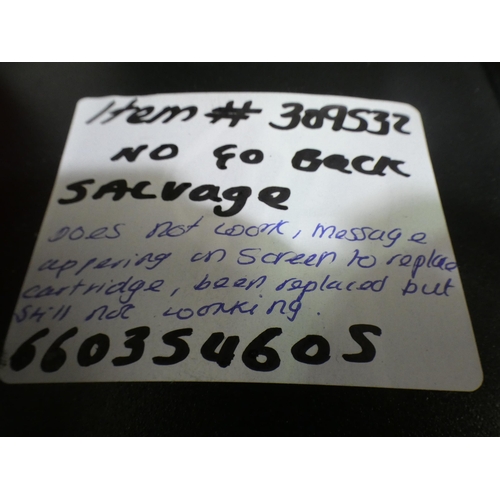 Item # 309532
NO GO BACK
SALVAGE
Does not work, message
appering on screen to replace
cartridge, been replaced but
still not working.
660354605